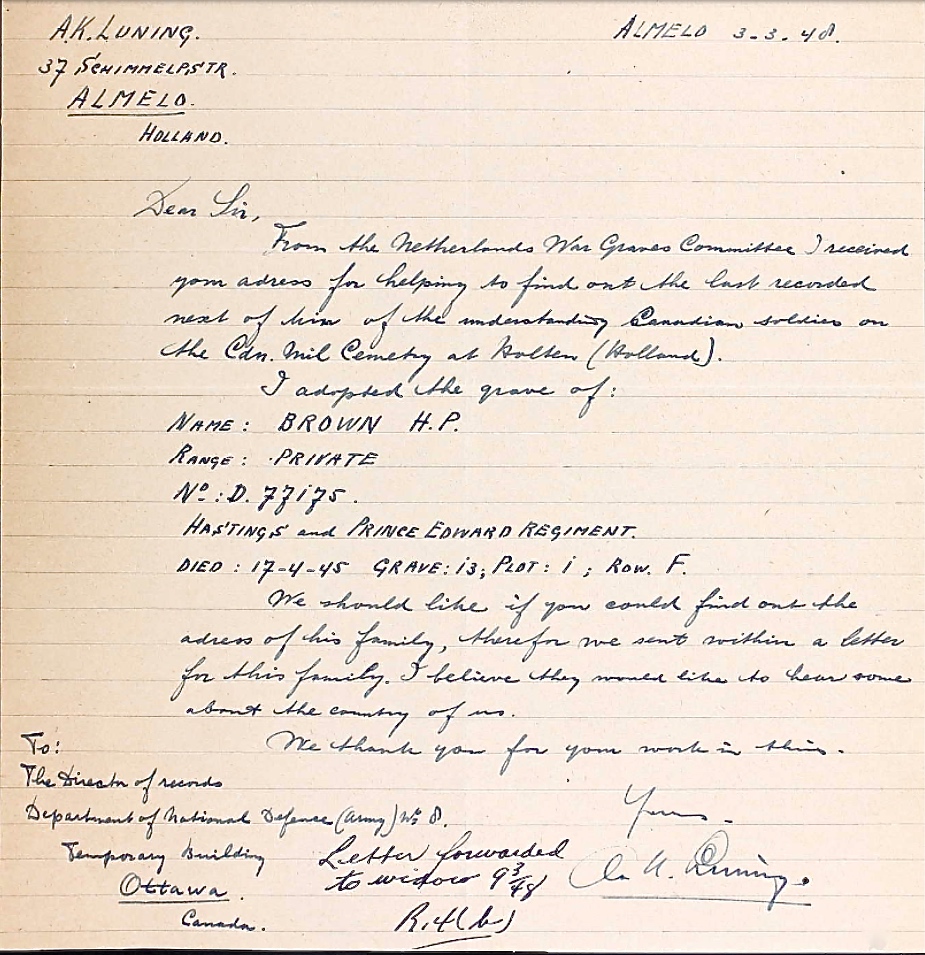 A.K. LUNING.
ALMELO 3-3-48.
37 SCHIMMELPSTR.
ALMELO.
HOLLAND.
Dear Sir,
From the Netherlands War Graves Committee I received
your adress for helping to find out the last recorded
next of kin of the understanding Canadian soldier on
the Cdn. Mil Cemetry at Holten (Holland).
I adopted the grave of:
NAME: BROWN H.P.
RANGE: PRIVATE
No: D. 77175.
HASTINGS and PRINCE EDWARD REGIMENT.
DIED: 17-4-45 GRAVE: 13; PLOT: 1; ROW. F.
We should like if you could find out the
adress of his family, therefor we sent within a letter
for this family. I believe they would like to hear some
about the country of us.
We thank you for your work in this.
To:
The Director of records
Department of National Defence (Army) No 8.
Temporary Building
Ottawa.
Canada.
Yours.
A. K. Luning.
Letter forwarded
to widow 9 3/48
R.4(b)